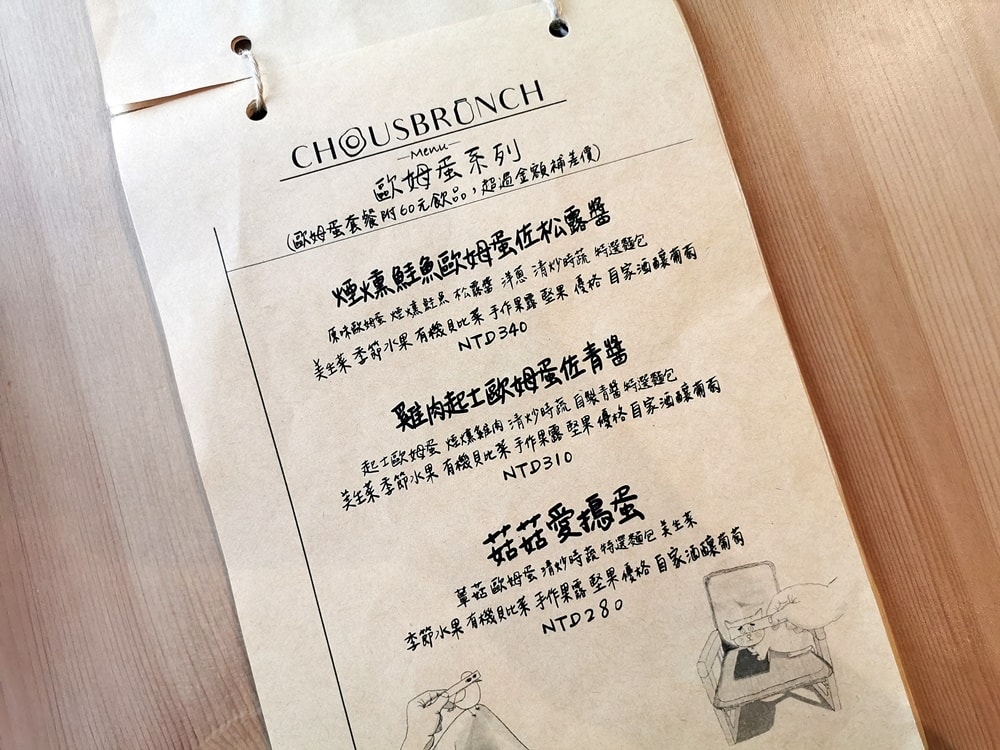 CHOUSBRUNCH
Menu
歐姆蛋系列
(歐姆蛋套餐附60元飲品，超過金額補差價)
煙燻鮭魚歐姆蛋佐松露醬
原味歐姆蛋 煙燻鮭魚 松露醬 洋蔥 清炒時蔬 特選麵包
美生菜 季節水果 有機貝比菜 手作果露 堅果 優格 自家酒釀葡萄
NTD340
雞肉起士歐姆蛋佐青醬
起士歐姆蛋 煙燻雞肉 清炒時蔬 自製青醬 特選麵包
美生菜 季節水果 有機貝比菜 手作果露 堅果 優格 自家酒釀葡萄
NTD310
菇菇愛搗蛋
蕈菇歐姆蛋 清炒時蔬 特選麵包 美生菜
季節水果 有機貝比菜 手作果露 堅果 優格 自家酒釀葡萄
NTD280